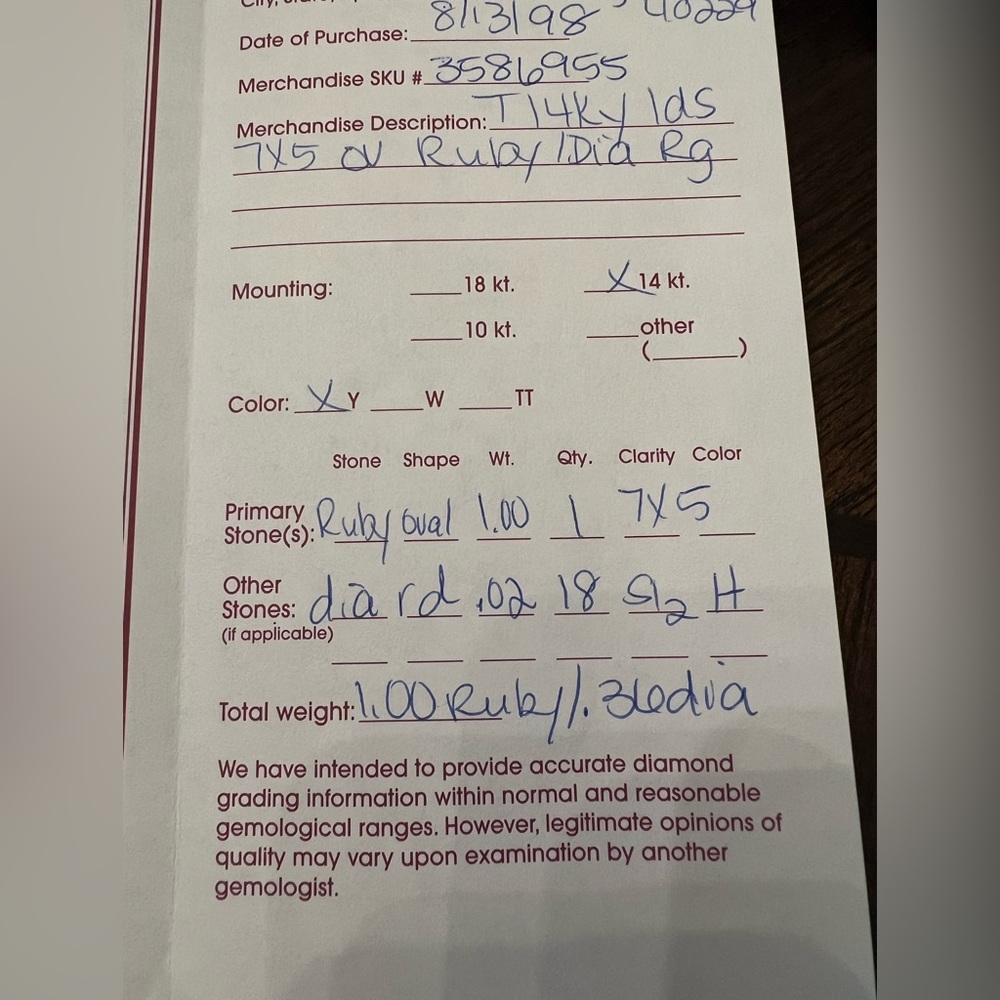 City, State,
Date of Purchase: 8/13/98 40229
Merchandise SKU # 3586955
Merchandise Description: T 14Ky lds
7X5 OV Ruby/Dia Rg
Mounting: ____18 kt. __X__14 kt.
____10 kt. ____other
(______)
Color: __X__Y ____W ____TT
Stone Shape Wt. Qty. Clarity Color
Primary
Stone(s): Ruby oval 1.00 1 7X5
Other
Stones: dia rd .02 18 SI2 H
(if applicable)
Total weight: 1.00 Ruby/.36dia
We have intended to provide accurate diamond
grading information within normal and reasonable
gemological ranges. However, legitimate opinions of
quality may vary upon examination by another
gemologist.